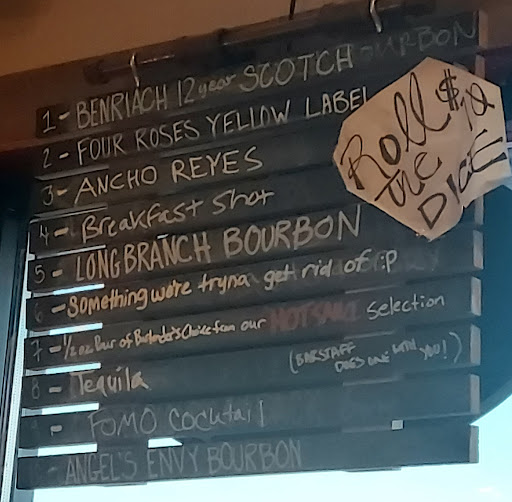 1 - BENRIACH 12 year SCOTCH
2 - FOUR ROSES YELLOW LABEL
3 - ANCHO REYES
4 - Breakfast Shot
5 - LONGBRANCH BOURBON
6 - Something we're tryna get rid of :p
7 - 1/2 oz Pour of Bartender's Choice from our HOT SAUCE Selection
8 - Tequila (BARSTAFF DOES ONE WITH YOU!)
9 - FOMO COCKtail
ANGEL'S ENVY BOURBON
Roll $10
THE
DICE